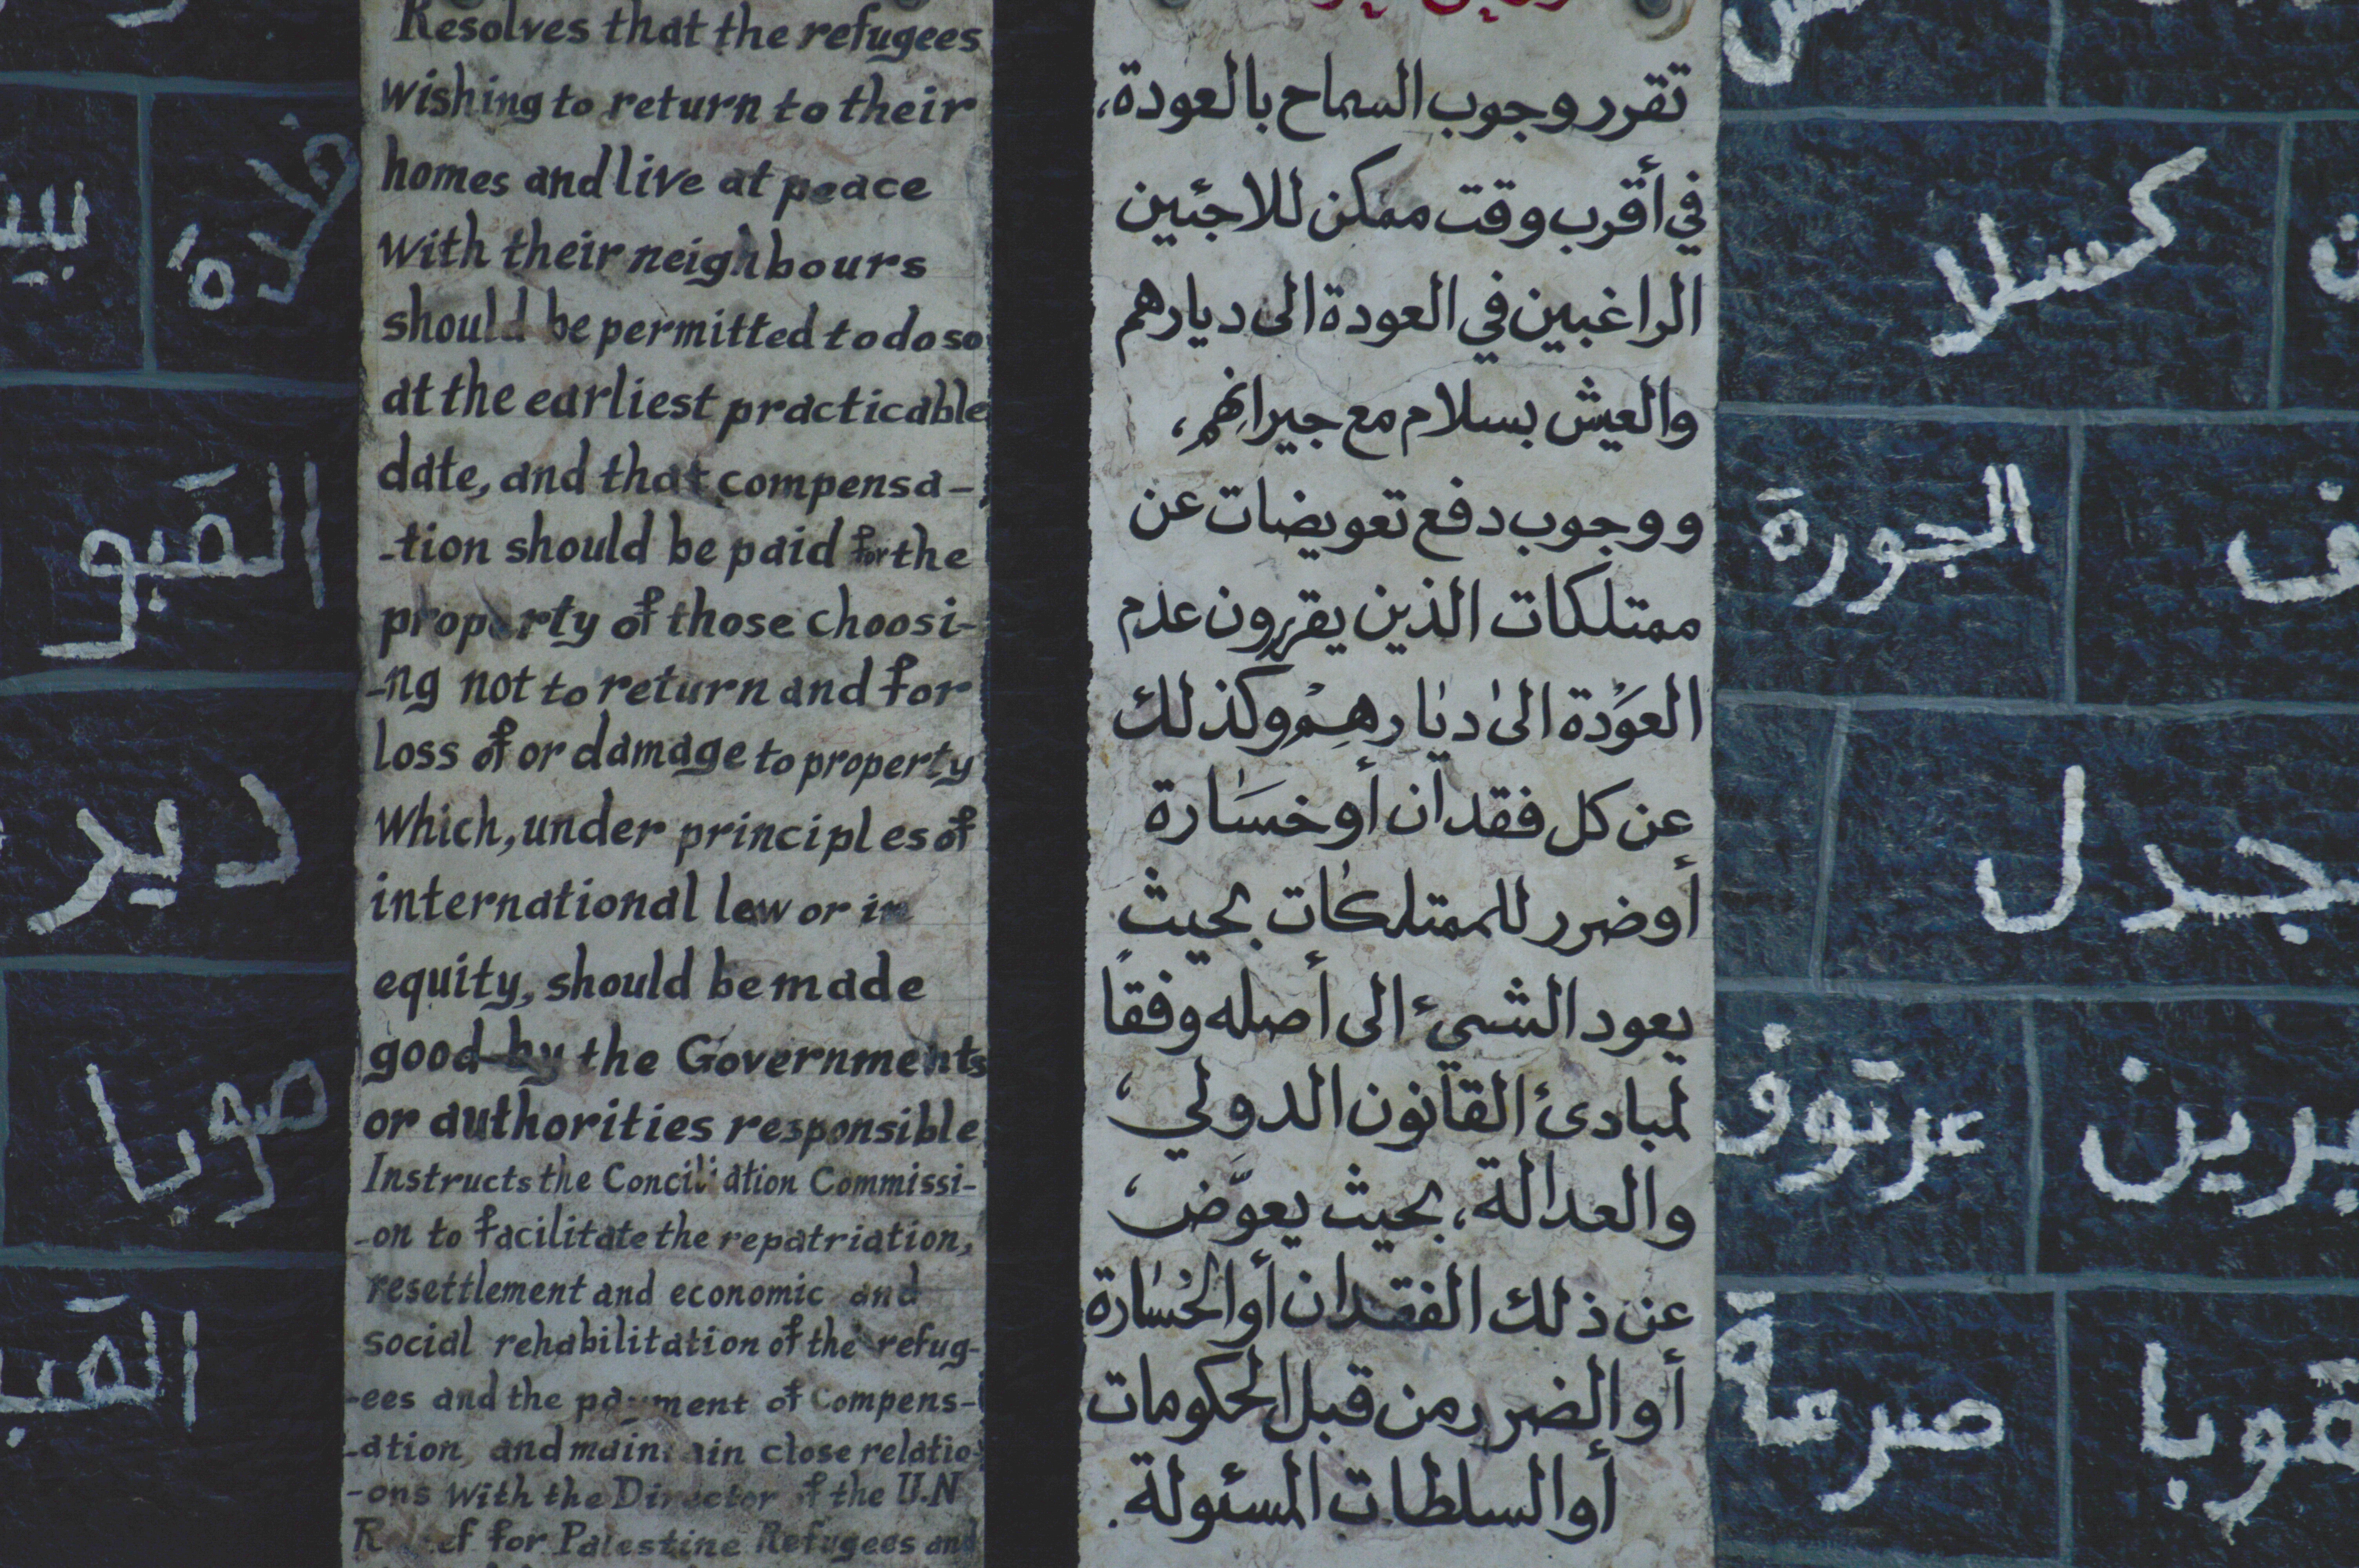 Resolves that the refugees
wishing to return to their
homes and live at peace
with their neighbours
should be permitted to do so
at the earliest practicable
date, and that compensa-
-tion should be paid for the
property of those choosi-
-ng not to return and for
loss of or damage to property
Which, under principles of
international law or in
equity, should be made
good by the Governments
or authorities responsible
Instructs the Conciliation Commissi-
-on to facilitate the repatriation,
resettlement and economic and
social rehabilitation of the refug-
-ees and the payment of compens-
-ation, and maintain close relatio-
-ons with the Director of the U.N
Relief for Palestine Refugees and
تقرر وجوب السماح بالعودة،
في أقرب وقت ممكن للاجئين
الراغبين في العودة الى ديارهم
والعيش بسلام مع جيرانهم،
ووجوب دفع تعويضات عن
ممتلكات الذين يقررون عدم
العَوْدة الى ديارهِمْ وكذلك
عن كل فقدان أو خسَارة
أو ضرر للممتلكات بحيث
يعود الشيء الى أصله وفقاً
لمبادئ القانون الدولي،
والعدالة، بحيث يعوَّض،
عن ذلك الفقدان أو الخسارة
أو الضرر من قبل الحكومات
أو السلطات المسئولة.
القبو
دير
صوبا
كسلا
الجورة
جدل
عرتوف
برين
صرعة
قوبا